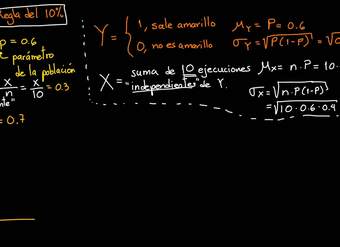 Regla del 10%
p = 0.6
parámetro
de la población
x/n = x/10 = 0.3
= 0.7
Y = { 1, sale amarillo
0, no es amarillo
μY = P = 0.6
σY = √P(1-P) = √0
X = suma de 10 ejecuciones
"independientes" de Y.
μx = n·P = 10·
σx = √n·P(1-P)
= √10·0.6·0.4